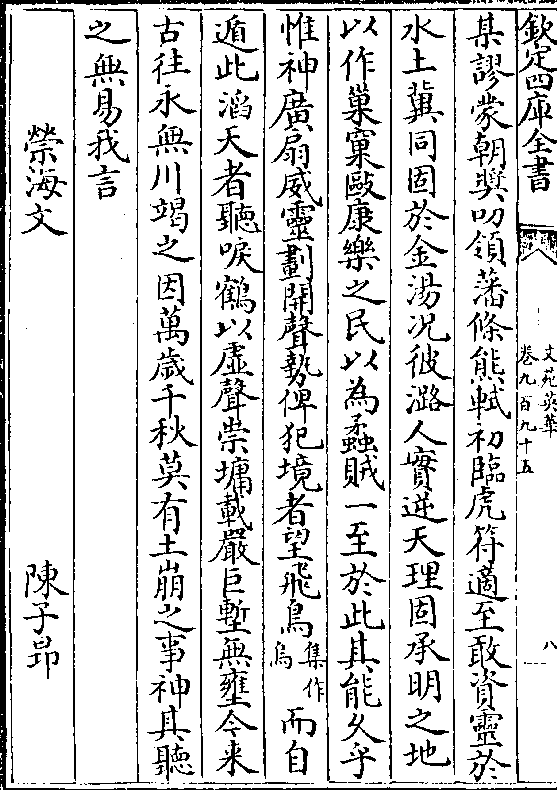 欽定四庫全書
文苑英華
卷九百九十五
八
某謬蒙朝奬叨領藩條熊軾初臨虎符適至敢資靈於
水土冀同固於金湯况彼潞人實逆天理固承明之地
以作巢窠毆康樂之民以為蟊賊一至於此其能久乎
惟神廣扇威靈劃開聲勢俾犯境者望飛鳥集作烏而自
遁此滔天者聽唳鶴以虛聲崇墉載嚴巨塹無壅今来
古往永無川竭之因萬歲千秋莫有土崩之事神其聽
之無易我言
禜海文 陳子昻